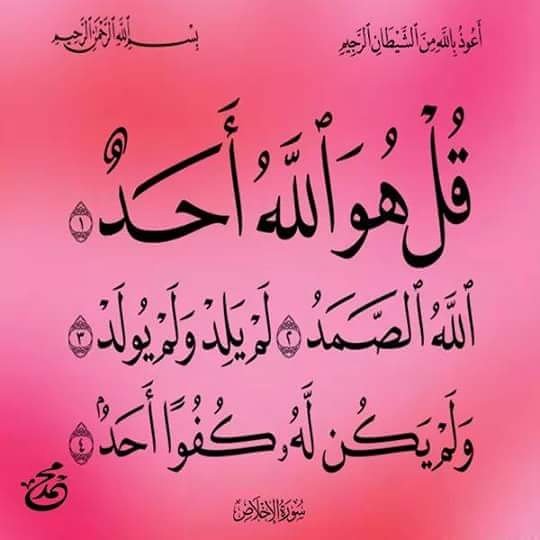 أَعُوذُ بِٱللَّهِ مِنَ ٱلشَّيْطَانِ ٱلرَّجِيمِ
بِسْمِ ٱللَّهِ ٱلرَّحْمَٰنِ ٱلرَّحِيمِ
قُلْ هُوَ ٱللَّهُ أَحَدٌ ١
ٱللَّهُ ٱلصَّمَدُ ٢ لَمْ يَلِدْ وَلَمْ يُولَدْ ٣
وَلَمْ يَكُن لَّهُۥ كُفُوًا أَحَدٌۢ ٤
محمد
سُورَةُ الإِخْلَاصِ